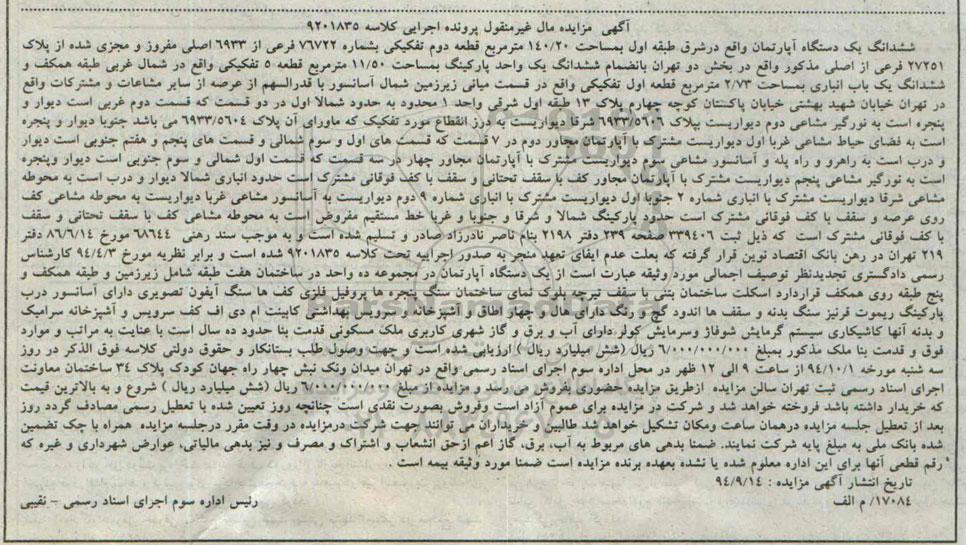 آگهی مزایده مال غیرمنقول پرونده اجرایی کلاسه ۹۲۰۱۸۳۵
ششدانگ یک دستگاه آپارتمان واقع درشرق طبقه اول بمساحت ۱۴۰/۲۰ مترمربع قطعه دوم تفکیکی بشماره ۷۶۷۲۲ فرعی از ۶۹۳۳ اصلی مفروز و مجزی شده از پلاک
۲۷۲۵۱ فرعی از اصلی مذکور واقع در بخش دو تهران بانضمام ششدانگ یک واحد پارکینگ بمساحت ۱۱/۵۰ مترمربع قطعه ۵ تفکیکی واقع در شمال غربی طبقه همکف و
ششدانگ یک باب انباری بمساحت ۲/۷۳ مترمربع قطعه اول تفکیکی واقع در قسمت میانی زیرزمین شمال آسانسور با قدرالسهم از عرصه از سایر مشاعات و مشترکات واقع
در تهران خیابان شهید بهشتی خیابان پاکستان کوچه چهارم پلاک ۱۳ طبقه اول شرقی واحد ۱ محدود به حدود شمالا اول در دو قسمت که قسمت دوم غربی است دیوار و
پنجره است به نورگیر مشاعی دوم دیواریست بپلاک ۶۹۳۳/۵۶۰۶ شرقا دیواریست به درز انقطاع مورد تفکیک که ماورای آن پلاک ۶۹۳۳/۵۶۰۴ می باشد جنوبا دیوار و پنجره
است به فضای حیاط مشاعی غربا اول دیواریست مشترک با آپارتمان مجاور دوم در ۷ قسمت که قسمت های اول و سوم شمالی و قسمت های پنجم و هفتم جنوبی است دیوار
و درب است به راهرو و راه پله و آسانسور مشاعی سوم دیواریست مشترک با آپارتمان مجاور چهار در سه قسمت که قسمت اول شمالی و سوم جنوبی است دیوار وپنجره
است به نورگیر مشاعی پنجم دیواریست مشترک با آپارتمان مجاور کف با سقف تحتانی و سقف با کف فوقانی مشترک است حدود انباری شمالا دیوار و درب است به محوطه
مشاعی شرقا دیواریست مشترک با انباری شماره ۲ جنوبا اول دیواریست مشترک با انباری شماره ۹ دوم دیواریست به آسانسور مشاعی غربا دیواریست به محوطه مشاعی کف
روی عرصه و سقف با کف فوقانی مشترک است حدود پارکینگ شمالا و شرقا و جنوبا و غربا خط مستقیم مفروض است به محوطه مشاعی کف با سقف تحتانی و سقف
با کف فوقانی مشترک است که ذیل ثبت ۳۳۹۴۰۶ صفحه ۲۳۹ دفتر ۲۱۹۸ بنام ناصر نادرزاد صادر و تسلیم شده است و به موجب سند رهنی ۶۸۶۴۴ مورخ ۸۶/۶/۱۴ دفتر
۲۱۹ تهران در رهن بانک اقتصاد نوین قرار گرفته که بعلت عدم ایفای تعهد منجر به صدور اجراییه تحت کلاسه ۹۲۰۱۸۳۵ شده است و برابر نظریه مورخ ۹۴/۴/۳ کارشناس
رسمی دادگستری تجدیدنظر توصیف اجمالی مورد وثیقه عبارت است از یک دستگاه آپارتمان در مجموعه ده واحد در ساختمان هفت طبقه شامل زیرزمین و طبقه همکف و
پنج طبقه روی همکف قراردارد اسکلت ساختمان بتنی با سقف تیرچه بلوک نمای ساختمان سنگ پنجره ها پروفیل فلزی کف ها سنگ آیفون تصویری دارای آسانسور درب
پارکینگ ریموت قرنیز سنگ بدنه و سقف ها اندود گچ و رنگ دارای هال، چهار اطاق و آشپزخانه و سرویس بهداشتی کابینت ام دی اف کف سرویس و آشپزخانه سرامیک
و بدنه آنها کاشیکاری سیستم گرمایش شوفاژ وسرمایش کولر دارای آب و برق و گاز شهری کاربری ملک مسکونی قدمت بنا حدود ده سال است با عنایت به مراتب و موارد
فوق و قدمت بنا ملک مذکور بمبلغ ۶/۰۰۰/۰۰۰/۰۰۰ ریال (شش میلیارد ریال) ارزیابی شده است و جهت وصول طلب بستانکار و حقوق دولتی کلاسه فوق الذکر در روز
سه شنبه مورخه ۹۴/۱۰/۱ از ساعت ۹ الی ۱۲ ظهر در محل اداره سوم اجرای اسناد رسمی واقع در تهران میدان ونک نبش چهار راه جهان کودک پلاک ۳۴ ساختمان معاونت
اجرای اسناد رسمی ثبت تهران سالن مزایده ازطریق مزایده حضوری بفروش می رسد و مزایده از مبلغ ۶/۰۰۰/۰۰۰/۰۰۰ ریال (شش میلیارد ریال) شروع و به بالاترین قیمت
که خریدار داشته باشد فروخته خواهد شد و شرکت در مزایده برای عموم آزاد است وفروش بصورت نقدی است چنانچه روز تعیین شده با تعطیل رسمی مصادف گردد روز
بعد از تعطیل جلسه مزایده درهمان ساعت ومکان تشکیل خواهد شد طالبین و خریداران می توانند جهت شرکت درمزایده در وقت مقرر درجلسه مزایده همراه با چک تضمین
شده بانک ملی به مبلغ پایه شرکت نمایند. ضمنا بدهی های مربوط به آب، برق، گاز اعم ازحق انشعاب و اشتراک و مصرف و نیز بدهی مالیاتی، عوارض شهرداری و غیره که
رقم قطعی آنها برای این اداره معلوم شده یا نشده بعهده برنده مزایده است ضمنا مورد وثیقه بیمه است
تاریخ انتشار آگهی مزایده : ۹۴/۹/۱۴
۱۷۰۸۴/ م الف رئیس اداره سوم اجرای اسناد رسمی - نقیبی